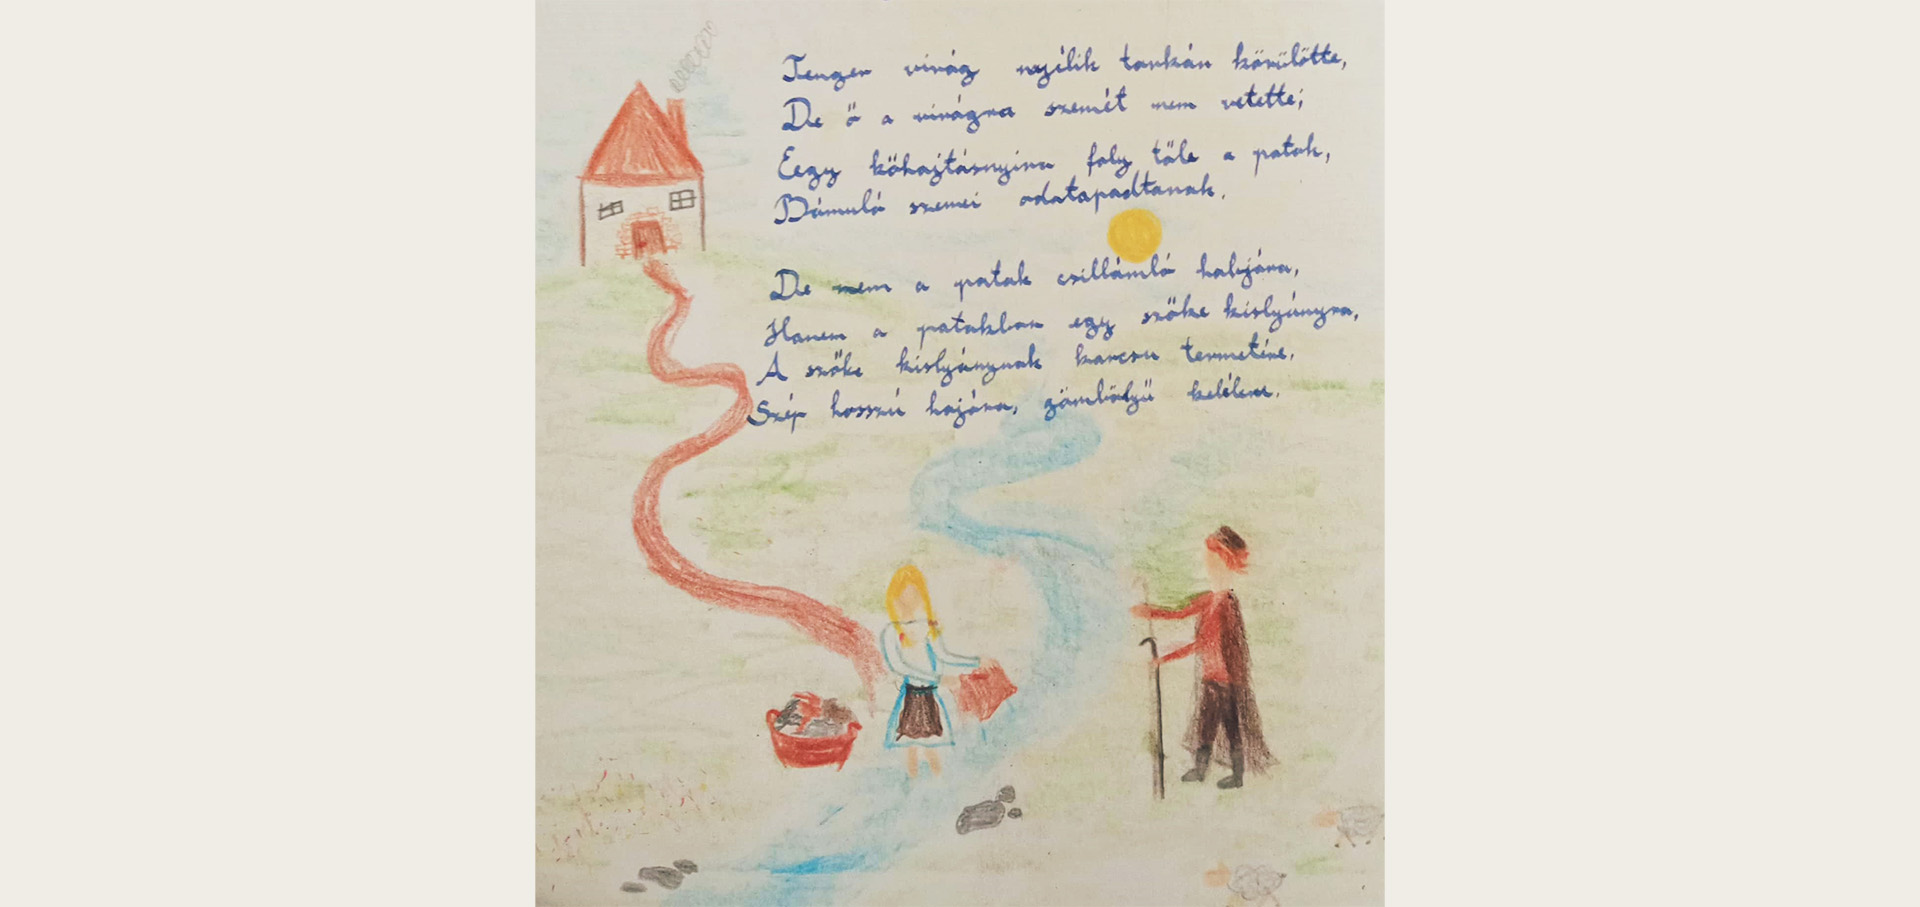 Tenger virág nyílik tarkán körülötte,
De ő a virágra szemét nem vetette;
Eegy kőhajtásnyira foly tőle a patak,
Bámuló szemei odatapadtanak.
De nem a patak csillámló habjára,
Hanem a patakban egy szőke kislyányra,
A szőke kislyánynak karcsu termetére,
Szép hosszú hajára, gömbölyű keblére.